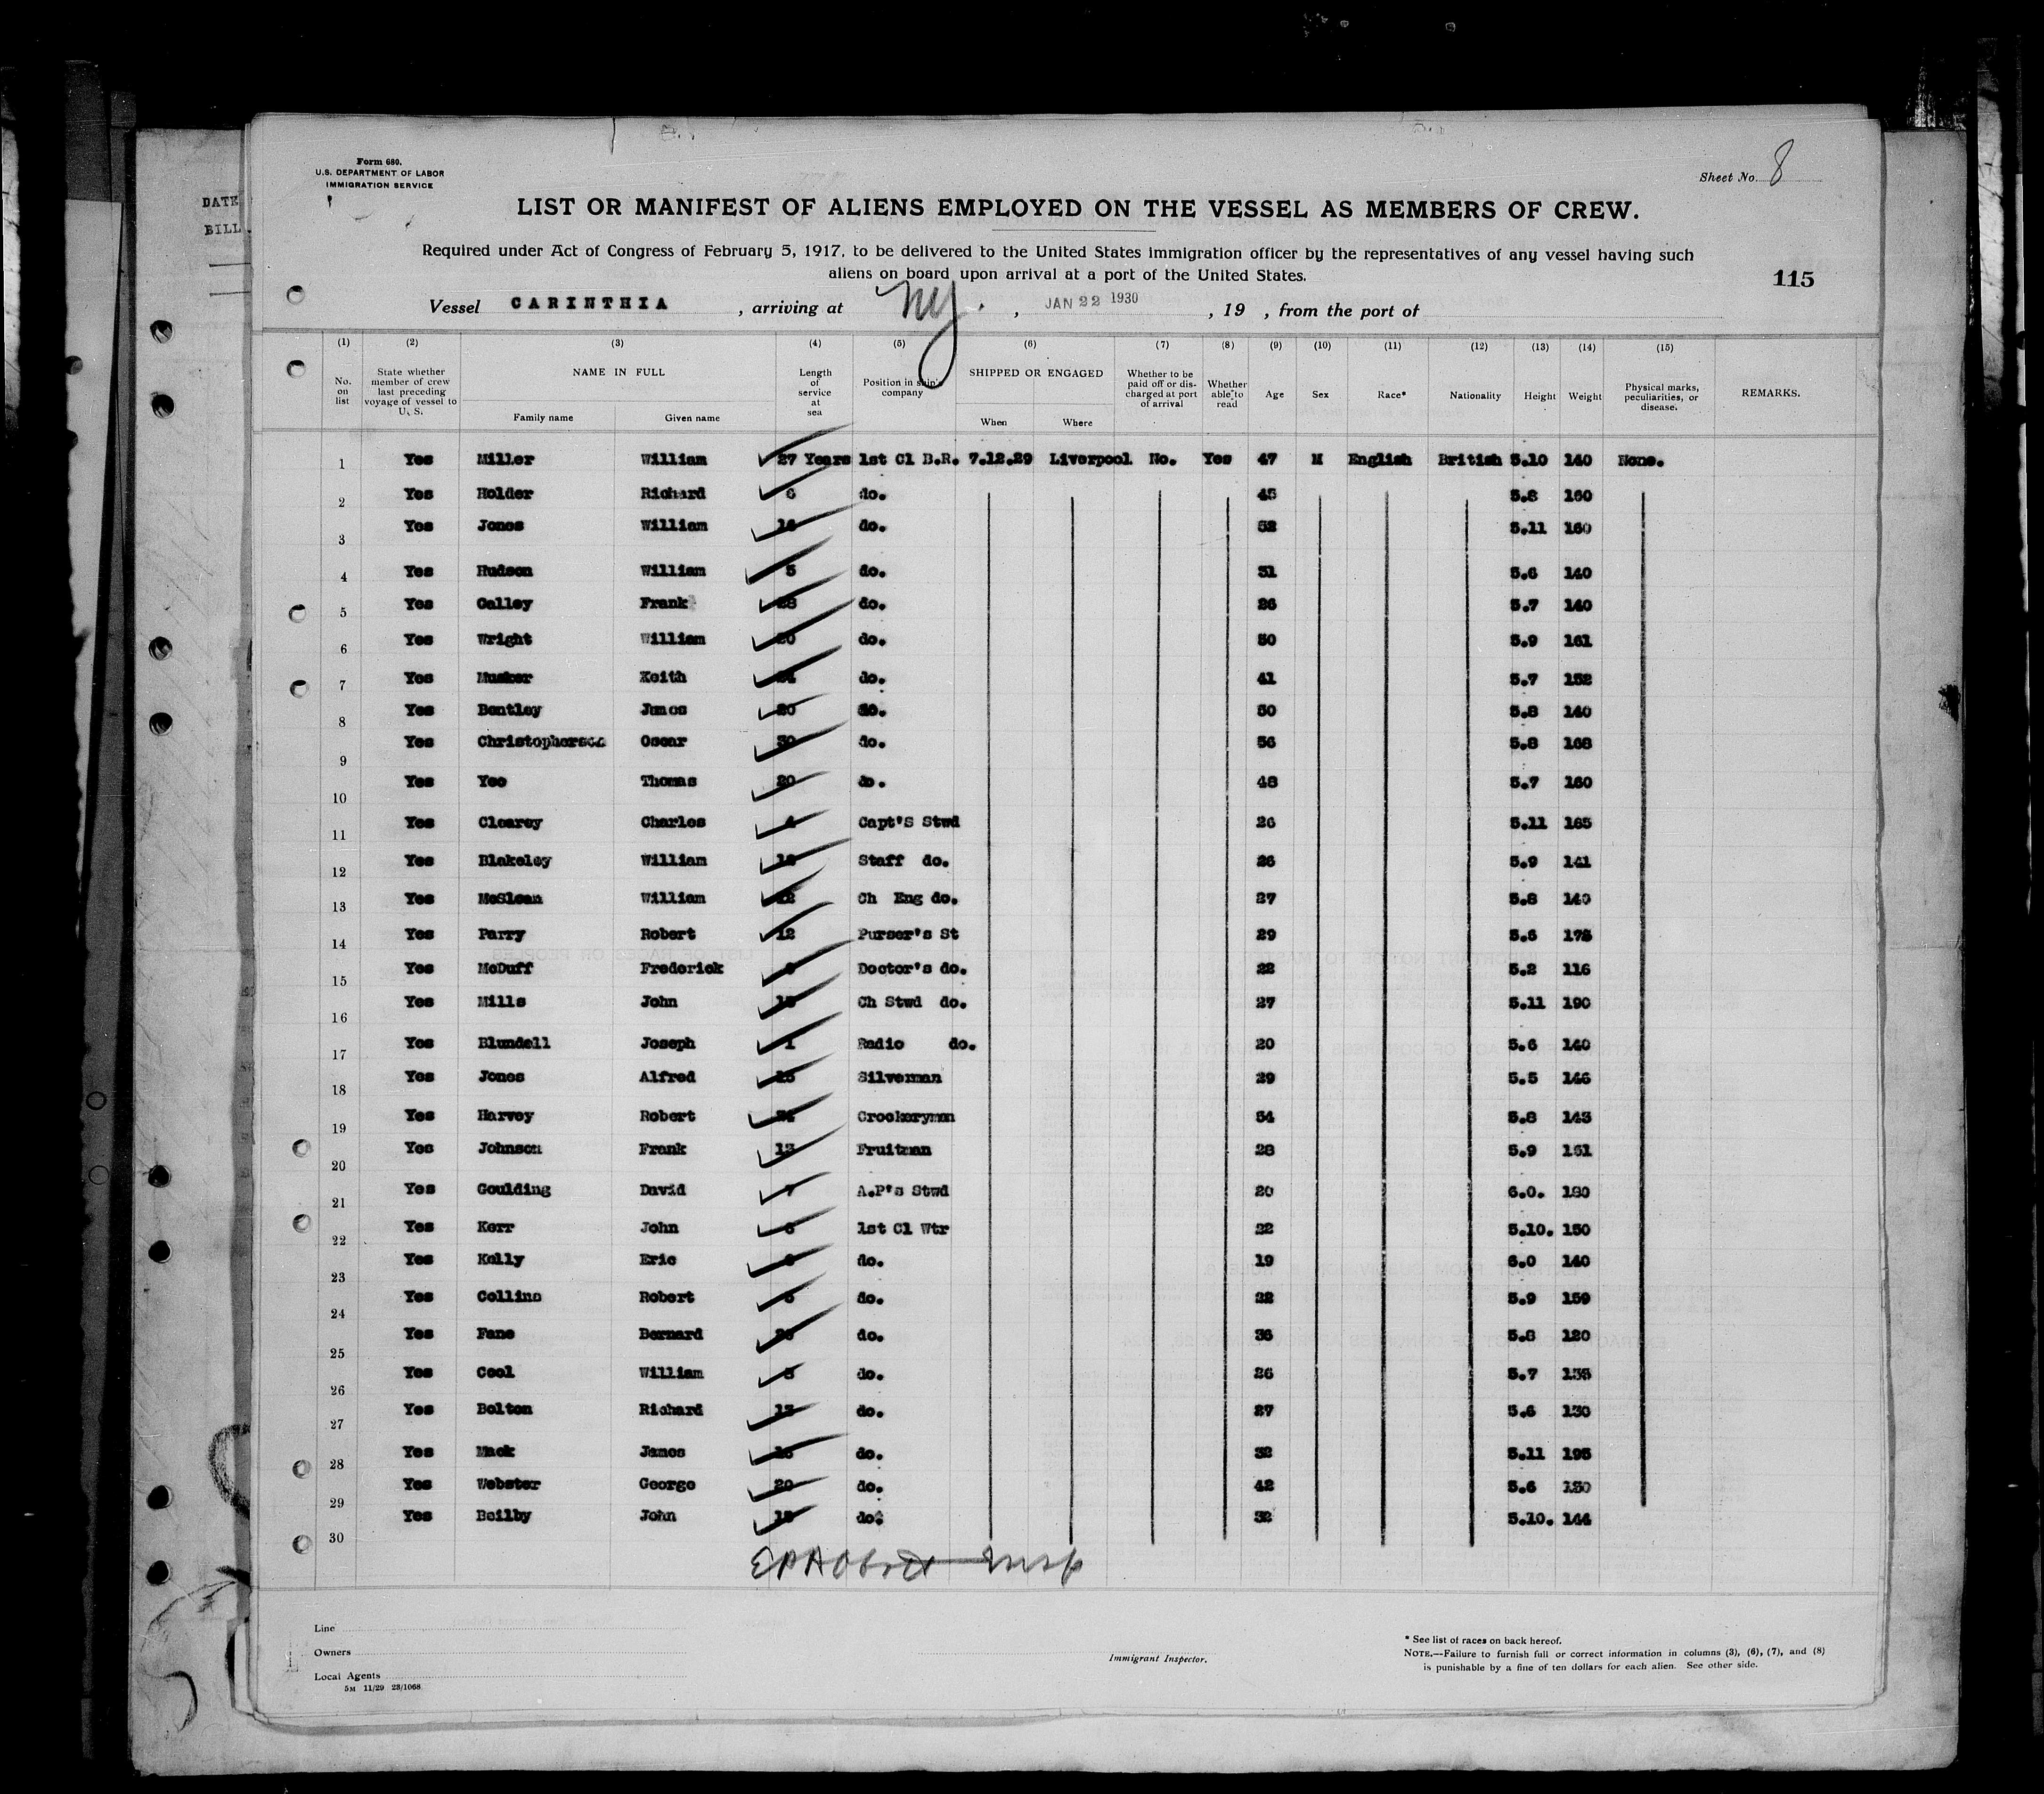 DATE
BILL
Form 680.
U.S. DEPARTMENT OF LABOR
IMMIGRATION SERVICE
Sheet No. 8
LIST OR MANIFEST OF ALIENS EMPLOYED ON THE VESSEL AS MEMBERS OF CREW.
Required under Act of Congress of February 5, 1917, to be delivered to the United States immigration officer by the representatives of any vessel having such
aliens on board upon arrival at a port of the United States.
115
Vessel CARINTHIA , arriving at NY. , JAN 22 1930 , 19 , from the port of
(1) (2) (3) (4) (5) (6) (7) (8) (9) (10) (11) (12) (13) (14) (15)
No. on list State whether member of crew last preceding voyage of vessel to U. S. NAME IN FULL Family name Given name Length of service at sea Position in ship's company SHIPPED OR ENGAGED When Where Whether to be paid off or discharged at port of arrival Whether able to read Age Sex Race* Nationality Height Weight Physical marks, peculiarities, or disease. REMARKS.
1 Yes Miller William 27 Years 1st Cl B.R. 7.12.29 Liverpool No. Yes 47 M English British 5.10 140 None.
2 Yes Holder Richard 6 do. 45 5.8 160
3 Yes Jones William 16 do. 52 5.11 160
4 Yes Hudson William 5 do. 31 5.6 140
5 Yes Galley Frank do. 26 5.7 140
6 Yes Wright William 20 do. 50 5.9 161
7 Yes Musker Keith do. 41 5.7 152
8 Yes Bentley James 20 do. 50 5.8 140
9 Yes Christopherson Oscar 30 do. 56 5.8 168
10 Yes Yeo Thomas 20 do. 48 5.7 160
11 Yes Clearey Charles 4 Capt'S Stwd 26 5.11 165
12 Yes Blakeley William Staff do. 26 5.9 141
13 Yes McSloan William Ch Eng do. 27 5.8 140
14 Yes Parry Robert 12 Purser's St 29 5.6 175
15 Yes McDuff Frederick Doctor's do. 22 5.2 116
16 Yes Mills John Ch Stwd do. 27 5.11 190
17 Yes Blundell Joseph 1 Radio do. 20 5.6 140
18 Yes Jones Alfred Silverman 29 5.5 146
19 Yes Harvey Robert Crockeryman 54 5.8 143
20 Yes Johnson Frank 13 Fruitman 28 5.9 151
21 Yes Goulding David 7 A.P's Stwd 20 6.0. 180
22 Yes Kerr John 1st Cl Wtr 22 5.10. 150
23 Yes Kelly Eric do. 19 6.0 140
24 Yes Collins Robert do. 22 5.9 159
25 Yes Fane Bernard do. 36 5.8 120
26 Yes Cool William do. 26 5.7 135
27 Yes Bolton Richard 13 do. 27 5.6 130
28 Yes Mack James do. 32 5.11 195
29 Yes Webster George 20 do. 42 5.6 130
30 Yes Beilby John do. 32 5.10. 144
Insp
Line
Owners
Local Agents
5M 11/29 23/1068
Immigrant Inspector.
* See list of races on back hereof.
NOTE.—Failure to furnish full or correct information in columns (3), (6), (7), and (8)
is punishable by a fine of ten dollars for each alien. See other side.